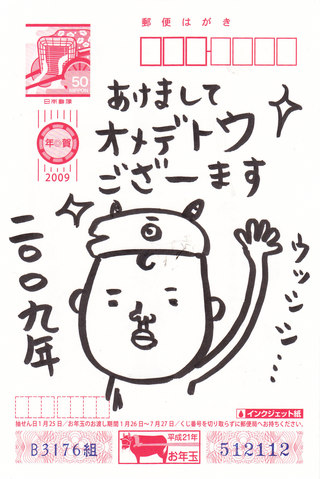 郵便はがき
50
NIPPON
日本郵便
年賀
2009
あけまして
オメデトウ
ござーます
二〇〇九年
ウッシシ…
インクジェット紙
抽せん日1月25日／お年玉のお渡し期間1月26日〜7月27日／くじ番号を切り取らずに郵便局へお持ちください。
B3176組
平成21年
お年玉
512112